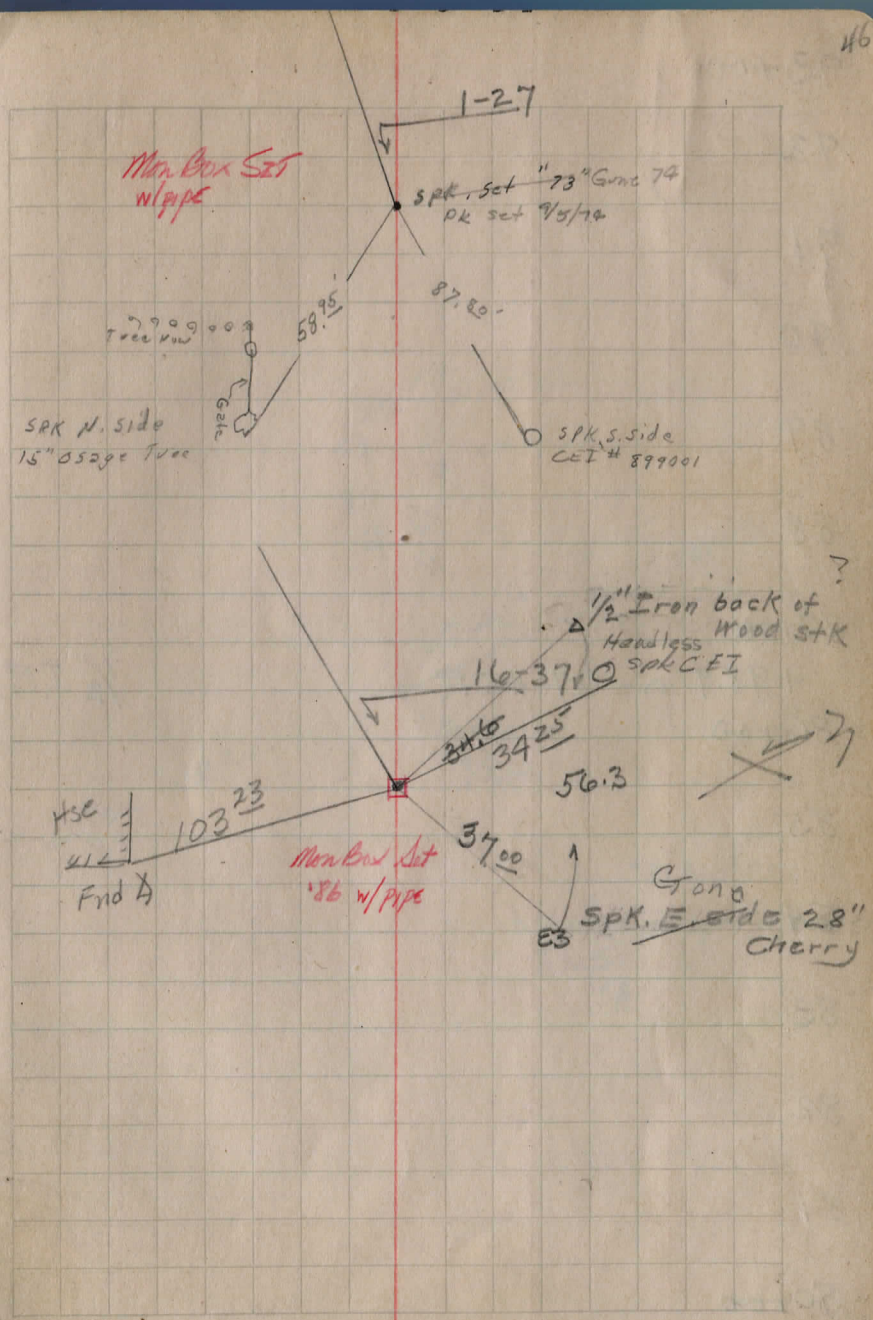 46
1-27
Mon Box SET
w/pipe
SPK. Set "73" Gone 74
PK set 9/5/74
58.95
87.80
Tree Row
Gate
SPK N. side
15" Osage Tree
SPK S. side
CEI # 899001
?
1/2" Iron back of
Wood stk
Headless
spk CEI
16-37
34.6
34 25
56.3
Hse
103 23
37 00
Mon Box Set
'86 w/pipe
Fnd
Gone
Spk. E. side 28"
Cherry